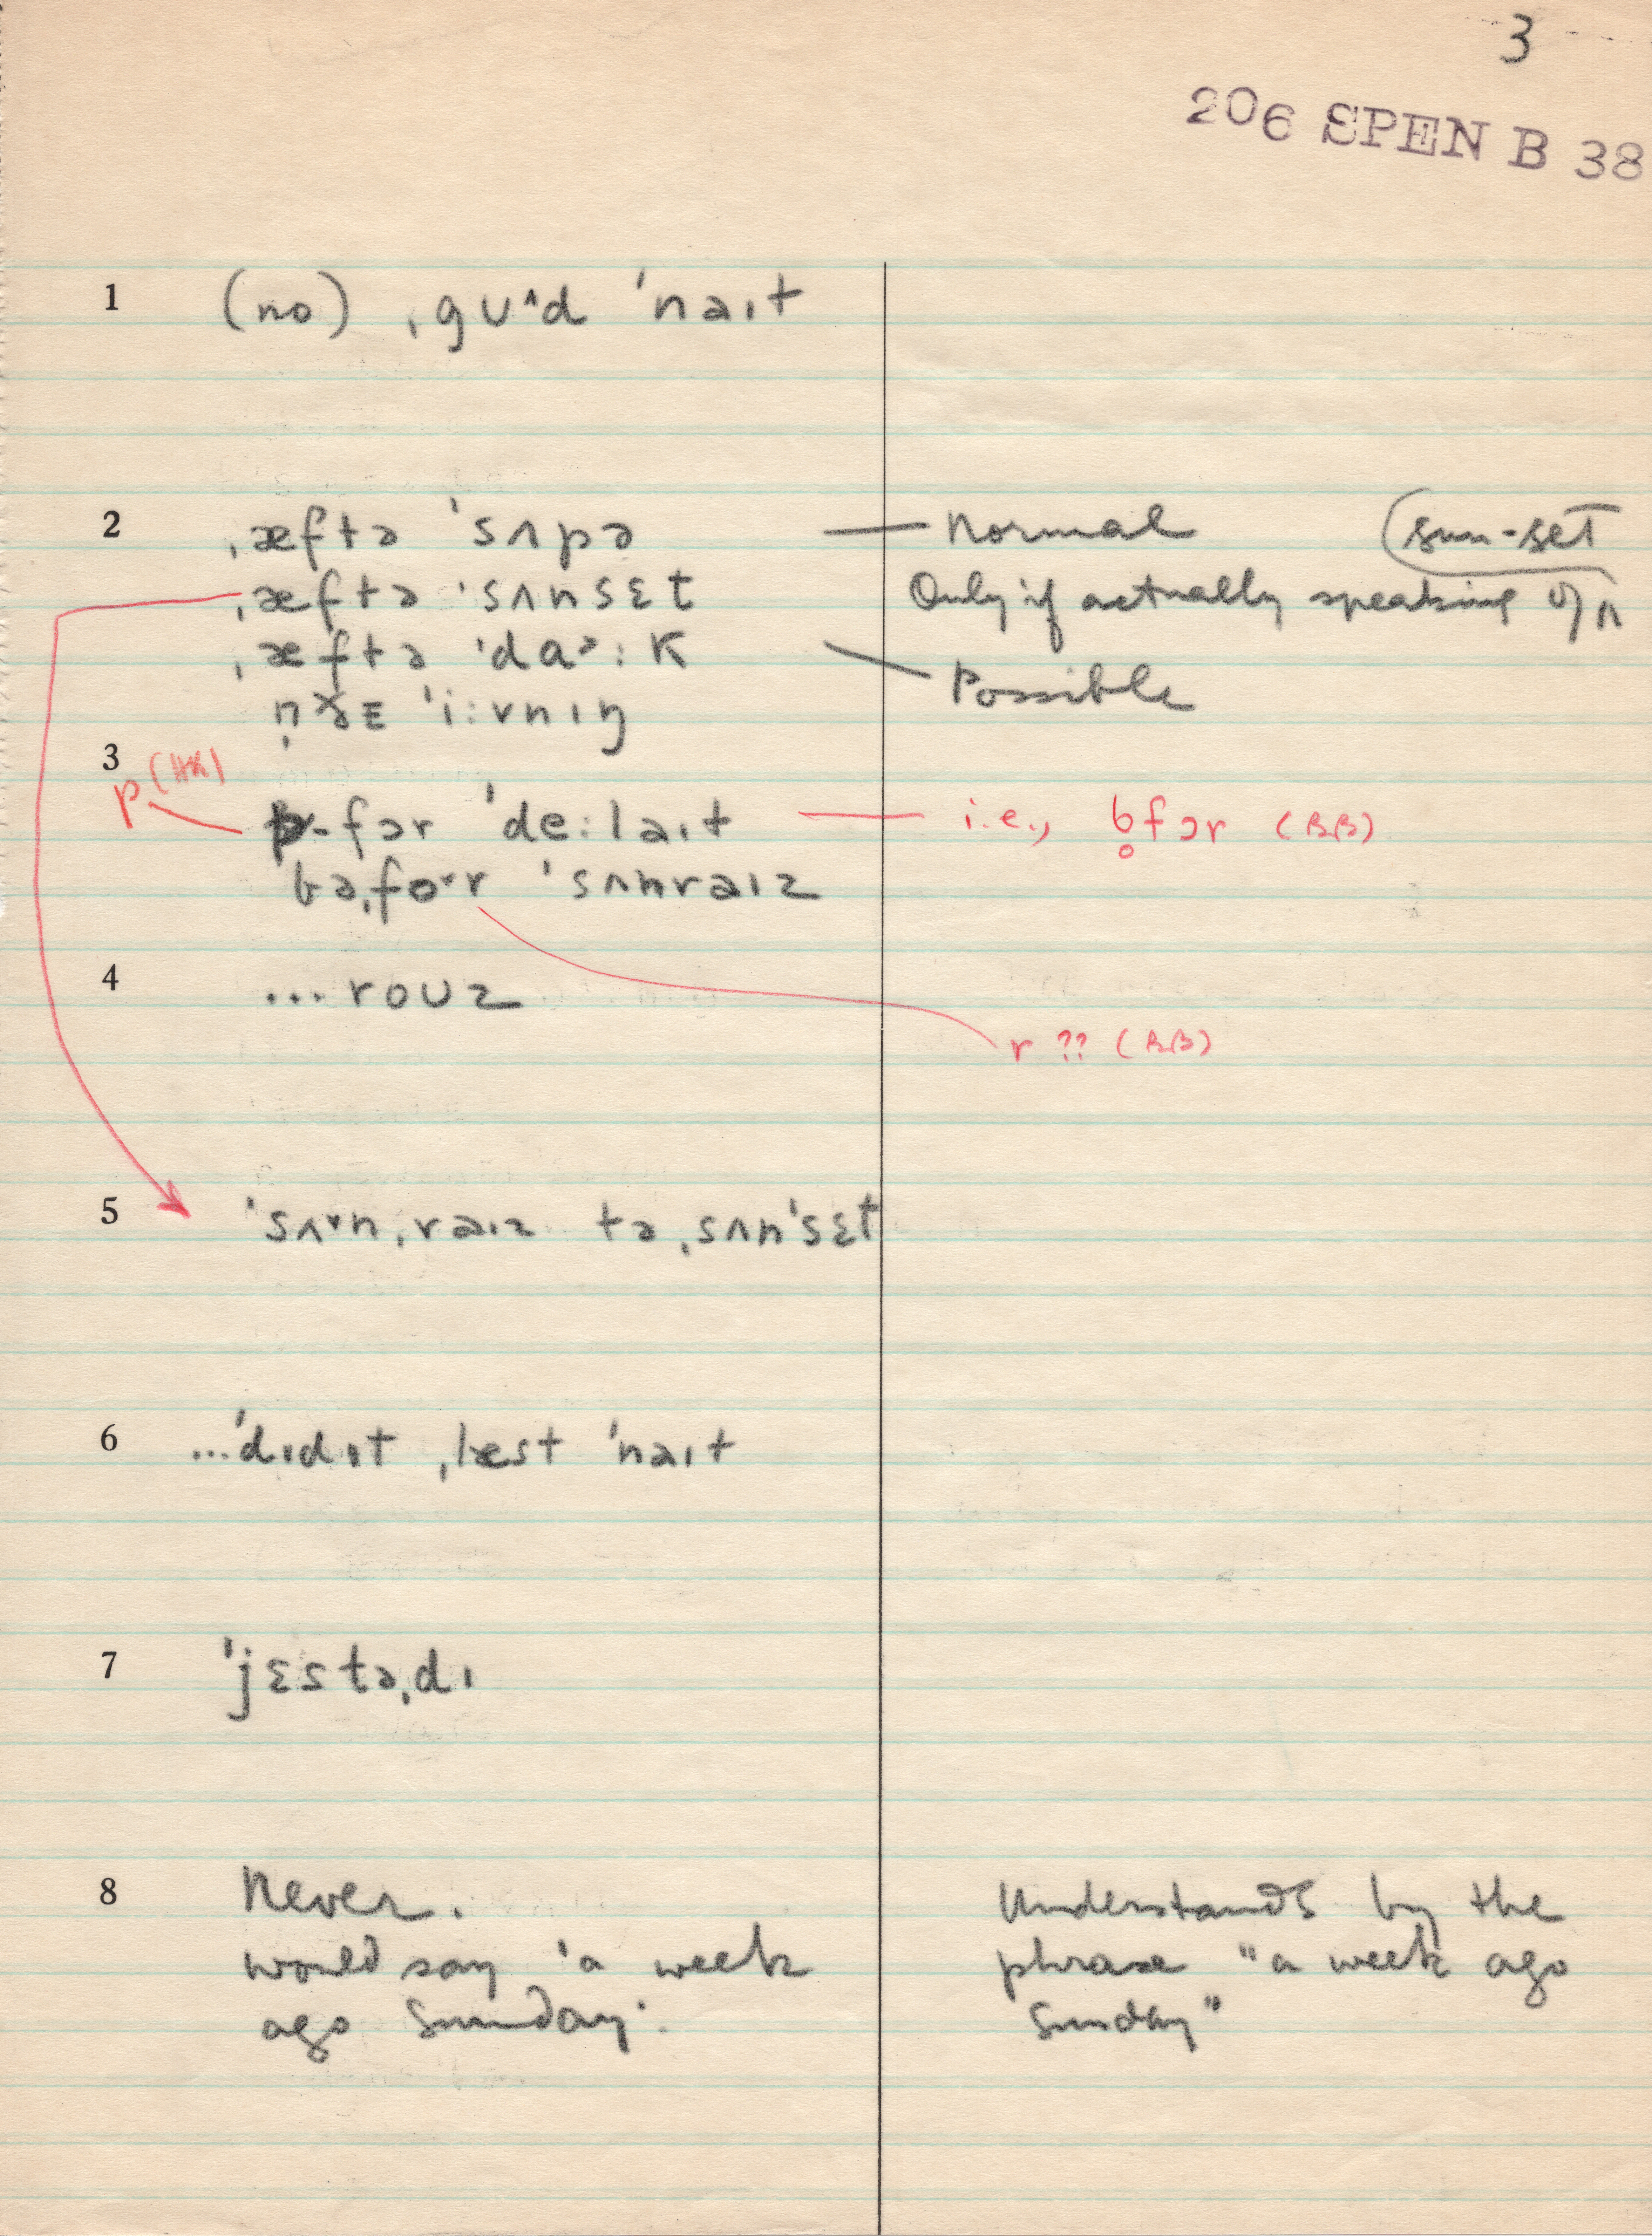 3
206 SPEN B 38
1 (no) ˌgʊ^d ˈnaɪt
2 ˌæftə ˈsʌpə — Normal (sun-set
ˌæftə ˈsʌnsɛt Only if actually speaking of
ˌæftə ˈdaᵊːk — Possible
ˈiːvnɪŋ
3 p (HK)
-fɔr ˈdeːlaɪt — i.e., b̥fɔr (BB)
ˈbəˌfo˞r ˈsʌnraɪz
4 ... roʊz
r ?? (BB)
5 ˈsʌ˅nˌraɪz təˌsʌnˈsɛt
6 ...ˈdɪdɪt ˌlæst ˈnaɪt
7 ˈjɛstəˌdɪ
8 Never. Understands by the
would say 'a week phrase "a week ago
ago Sunday'. Sunday"